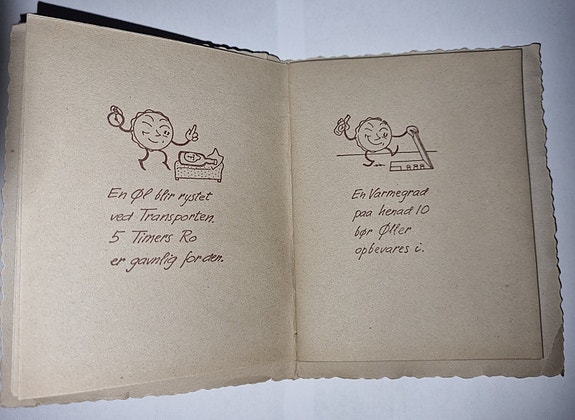 En Øl blir rystet
ved Transporten.
5 Timers Ro
er gavnlig for den.
En Varmegrad
paa henad 10
bør Øller
opbevares i.